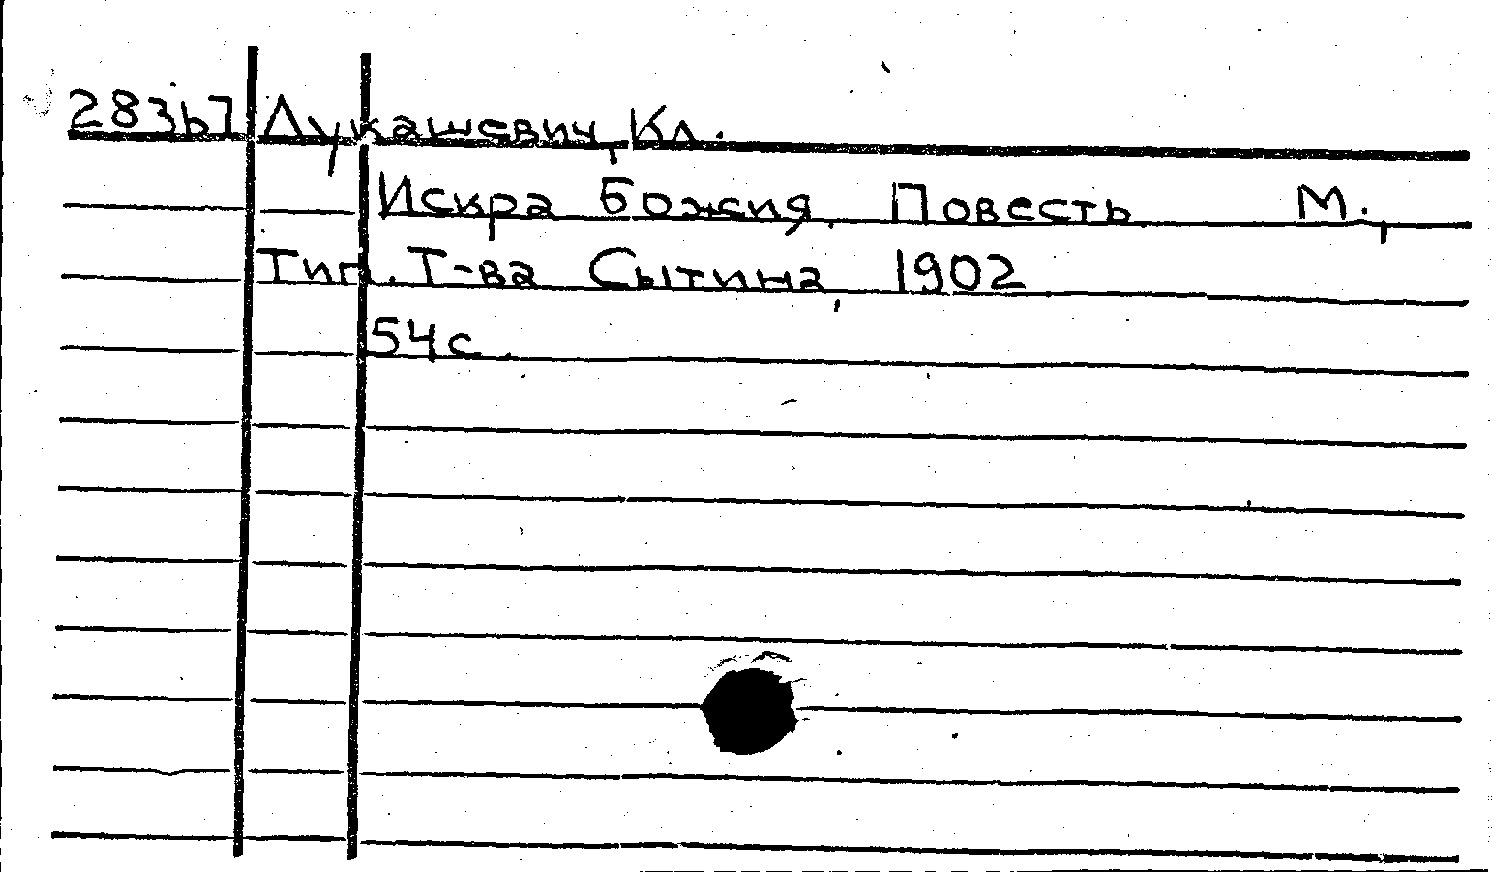 283b7 Лукашевич, Кл.
Искра Божия. Повесть М.,
Тип. Т-ва Сытина, 1902
54 с.